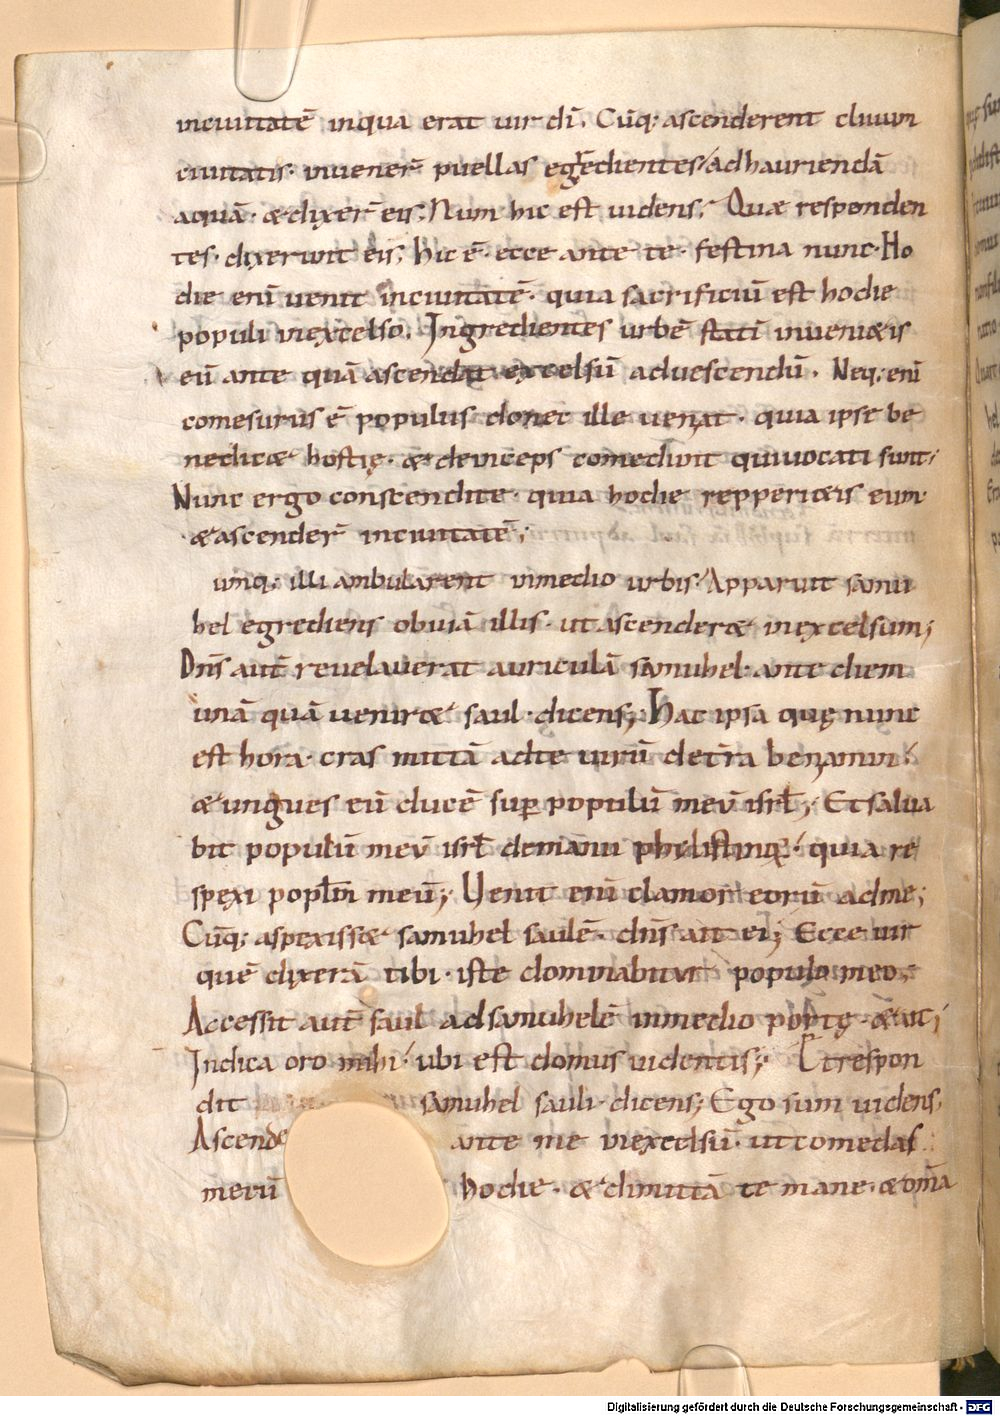 inciuitatē inqua erat uir dī. Cūq; ascenderent cliuum
ciuitatis· inuener̄ puellas egredientes adhauriendā
aquā· & dixer̄ eis; Num hic est uidens; Quae responden
tes· dixerunt eis; hic ē· ecce ante te· festina nunc· Ho
die enī uenit inciuitatē· quia sacrificiū est hodie
populi inexcelso. Ingredientes urbē statī inueni&is
eū ante quā ascendat excelsū aduescendū. Neq; enī
comesurus ē populus donec ille ueniat· quia ipse be
nedic& hostię· & deinceps comedunt quiuocati sunt;
Nunc ergo conscendite· quia hodie repperi&is eum·
& ascender̄ inciuitatē;
umq; illi ambularent inmedio urbis· Apparuit samu
hel egrediens obuiā illis· ut ascender& inexcelsum;
Dn̄s aut̄ reuelauerat auriculā samuhel· ante diem
unā quā uenir& saul· dicens; Hac ipsa quę nunc
est hora· cras mittā adte uirū det̄ra beniamin·
& ungues eū ducē sup populū meū isrl̄; Et salua
bit populū meū isrl̄ demanu phylistinoꝝ· quia re
spexi popl̄m meū; Uenit enī clamor eorū adme;
Cūq; aspexiss& samuhel saulē· dn̄s ait ei; Ecce uir
quē dixerā tibi· iste dominabitur populo meo;
Accessit aut̄ saul adsamuhelē inmedio portę· & ait;
Indica oro mihi· ubi est domus uidentis; Et respon
dit samuhel sauli· dicens; Ego sum uidens,
Ascende ante me inexcelsū· ut comedas
mecū hodie· & dimittā te mane· & om̄a
Digitalisierung gefördert durch die Deutsche Forschungsgemeinschaft - DFG